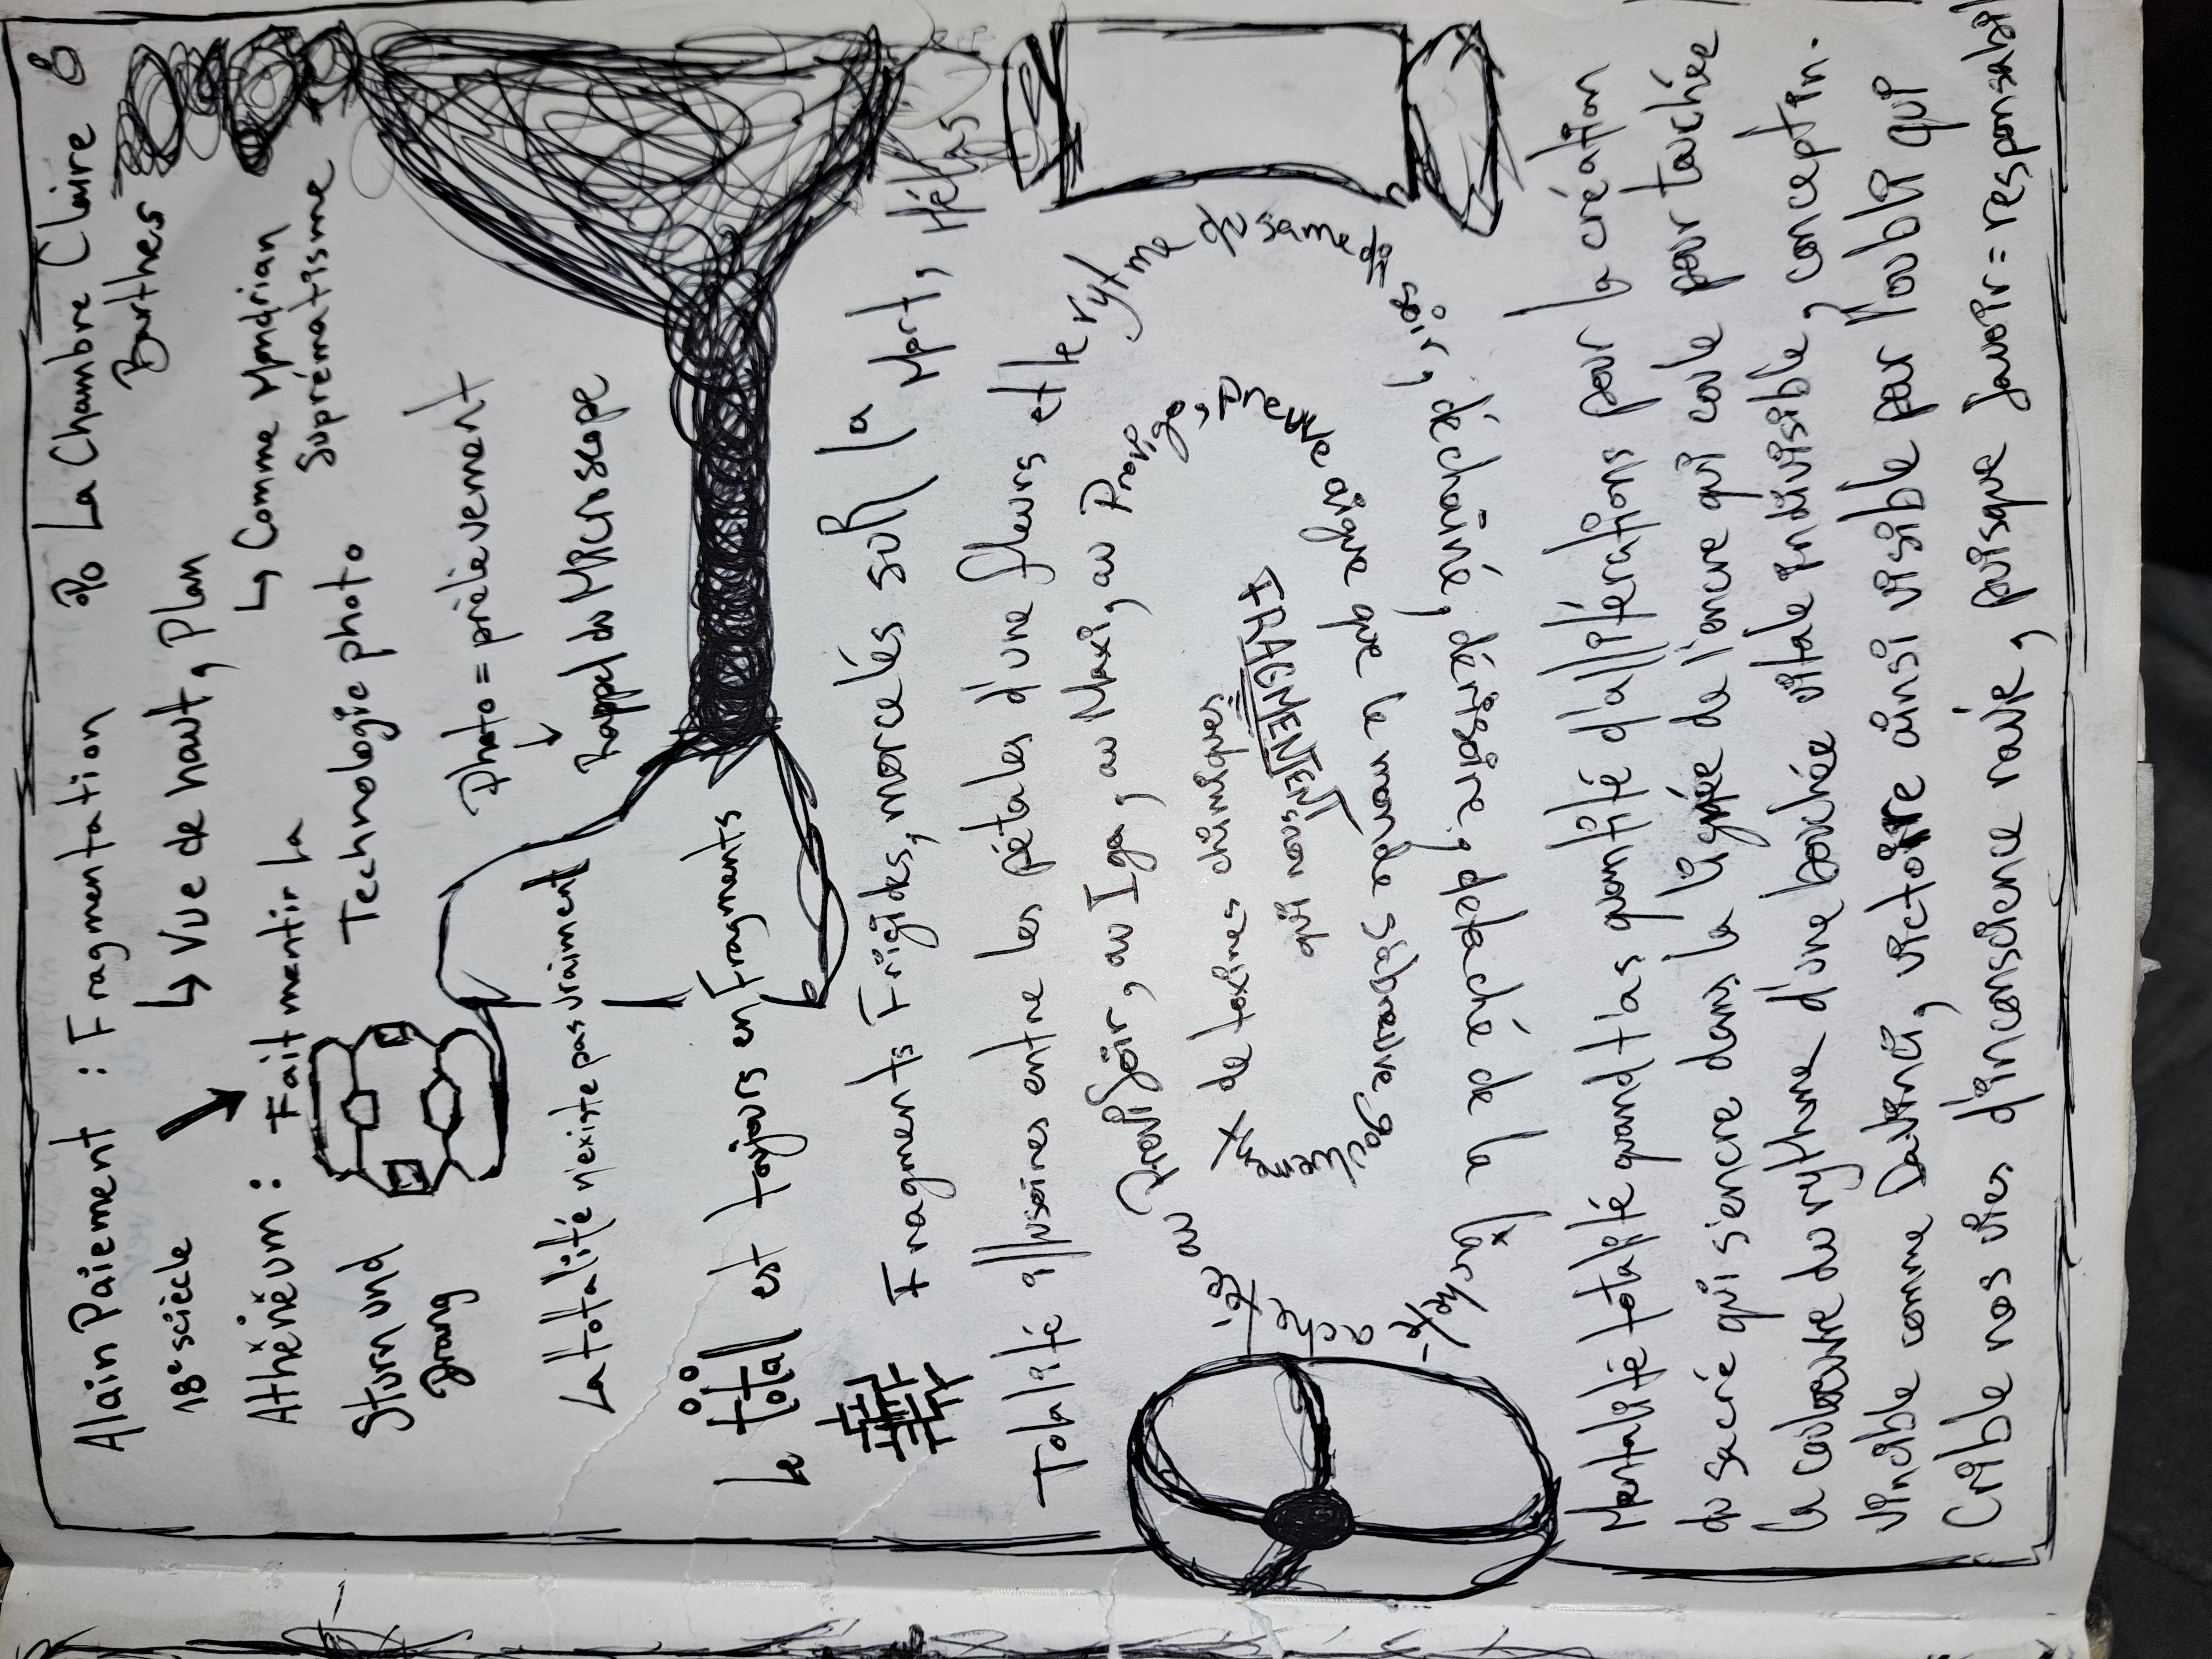 Alain Paiement : Fragmentation
% La Chambre Claire
Barthes
18e sciècle
↳ Vue de haut, plan
↳ Comme Mondrian
Suprématisme
Athěněum : Fait mentir la
Technologie photo
Sturn und
Drang
Photo = prélèvement
↓
Rappel du Microscope
La totalité n'existe pas vraiment
Le total est toujours en Fragments
Fragments Frigides, morcelés sur la Mort, Hélas
Totalité illusoires entre les pétales d'une fleurs et le rytme du samedi soir, déchaîné, dérisoire, détaché de la
au Provigoir, au Iga, au Maxi, au Provigo, Preuve aigue que le monde s'abreuve
de toxines chimiques
qui nous
FRAGMENTENT
Mentalité totalité quand t'as quantité d'allitérations pour la création
du sacré qui s'encre dans la lignée de l'encre qui coule pour touchée
la couleuvre du rythme d'une bouchée vitale indivisible, conceptin.
vincible comme Davinci, victoire ainsi visible par l'oubli qui
Crible nos vies d'inconscience naïve, puisque savoir = responsabil